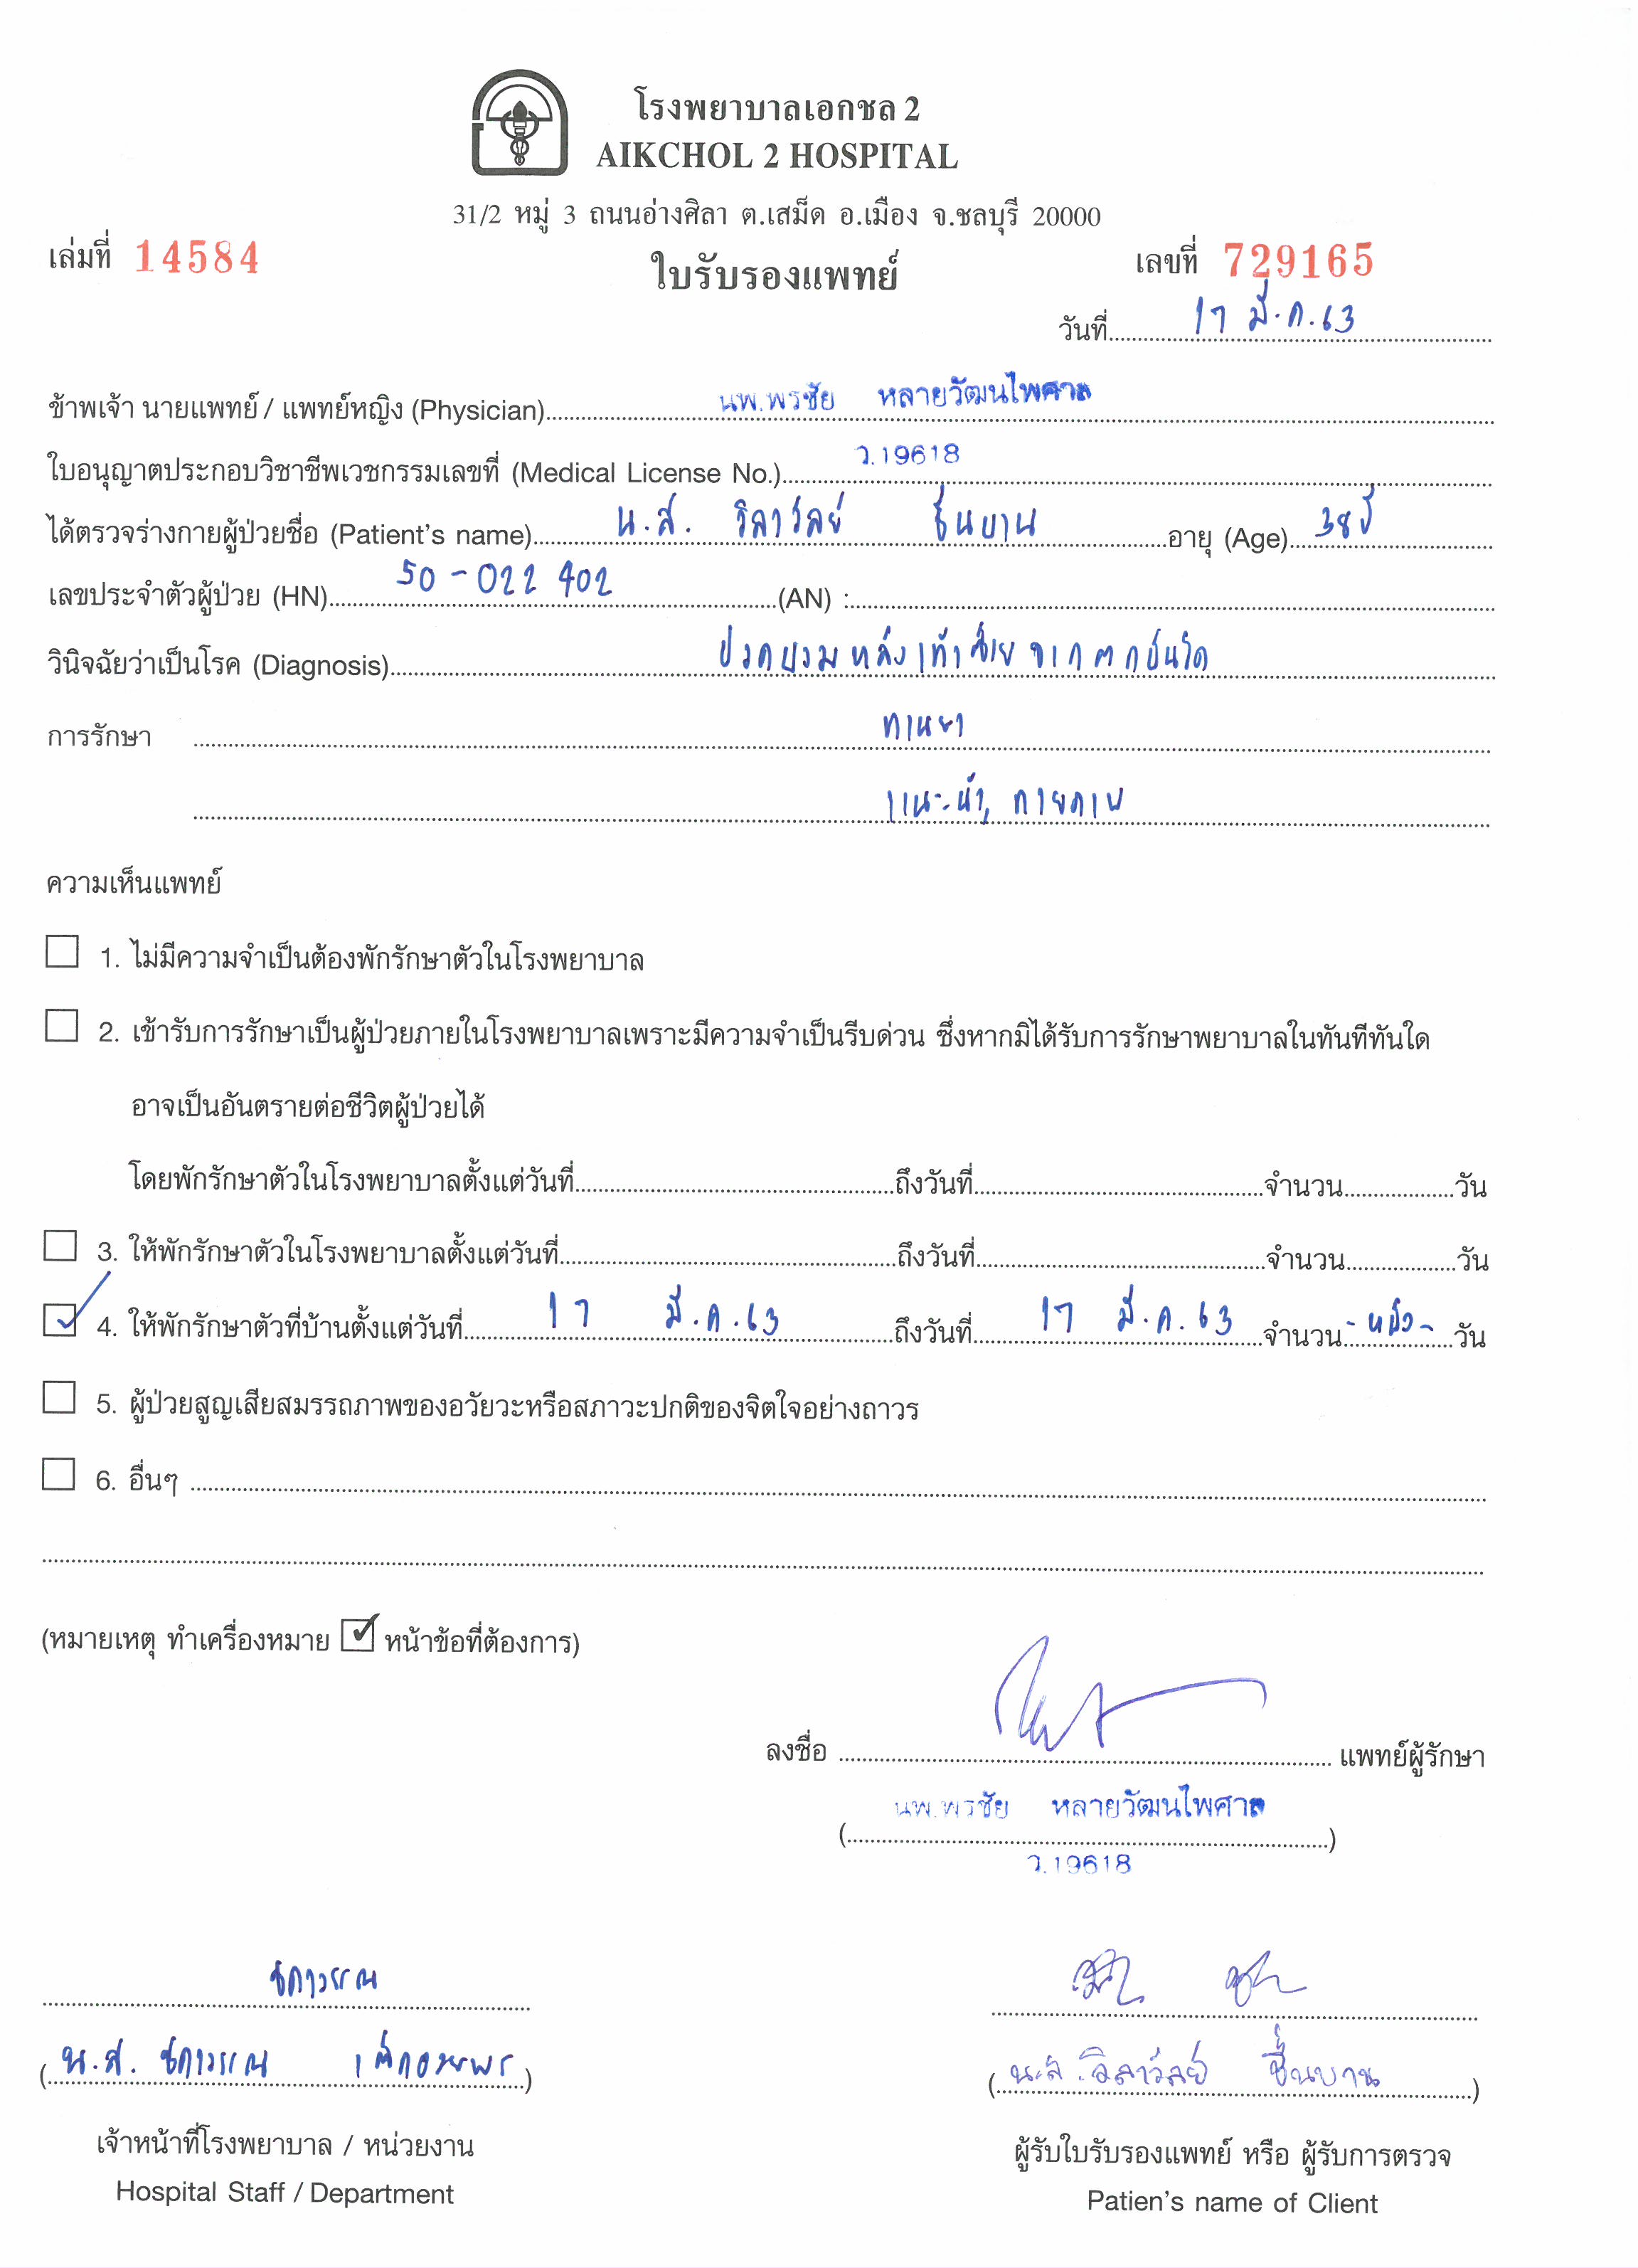 โรงพยาบาลเอกชล 2
AIKCHOL 2 HOSPITAL
31/2 หมู่ 3 ถนนอ่างศิลา ต.เสม็ด อ.เมือง จ.ชลบุรี 20000
เล่มที่ 14584 ใบรับรองแพทย์ เลขที่ 729165
วันที่ 17 มี.ค.63
ข้าพเจ้า นายแพทย์ / แพทย์หญิง (Physician) นพ.พรชัย หลายวัฒนไพศาล
ใบอนุญาตประกอบวิชาชีพเวชกรรมเลขที่ (Medical License No.) ว.19618
ได้ตรวจร่างกายผู้ป่วยชื่อ (Patient's name) น.ส. วิลาวัลย์ ชื่นบาน อายุ (Age) 38 ปี
เลขประจำตัวผู้ป่วย (HN) 50-022402 (AN) :
วินิจฉัยว่าเป็นโรค (Diagnosis) ปวดบวมหลังเท้าซ้ายจากตกบันได
การรักษา ทานยา
แนะนำ, กายภาพ
ความเห็นแพทย์
1. ไม่มีความจำเป็นต้องพักรักษาตัวในโรงพยาบาล
2. เข้ารับการรักษาเป็นผู้ป่วยภายในโรงพยาบาลเพราะมีความจำเป็นรีบด่วน ซึ่งหากมิได้รับการรักษาพยาบาลในทันทีทันใด
อาจเป็นอันตรายต่อชีวิตผู้ป่วยได้
โดยพักรักษาตัวในโรงพยาบาลตั้งแต่วันที่ ถึงวันที่ จำนวน วัน
3. ให้พักรักษาตัวในโรงพยาบาลตั้งแต่วันที่ ถึงวันที่ จำนวน วัน
4. ให้พักรักษาตัวที่บ้านตั้งแต่วันที่ 17 มี.ค.63 ถึงวันที่ 17 มี.ค.63 จำนวน -หนึ่ง- วัน
5. ผู้ป่วยสูญเสียสมรรถภาพของอวัยวะหรือสภาวะปกติของจิตใจอย่างถาวร
6. อื่นๆ
(หมายเหตุ ทำเครื่องหมาย ☑ หน้าข้อที่ต้องการ)
ลงชื่อ แพทย์ผู้รักษา
นพ.พรชัย หลายวัฒนไพศาล
ว.19618
(น.ส. วิลาวัลย์ ชื่นบาน)
เจ้าหน้าที่โรงพยาบาล / หน่วยงาน ผู้รับใบรับรองแพทย์ หรือ ผู้รับการตรวจ
Hospital Staff / Department Patien's name of Client